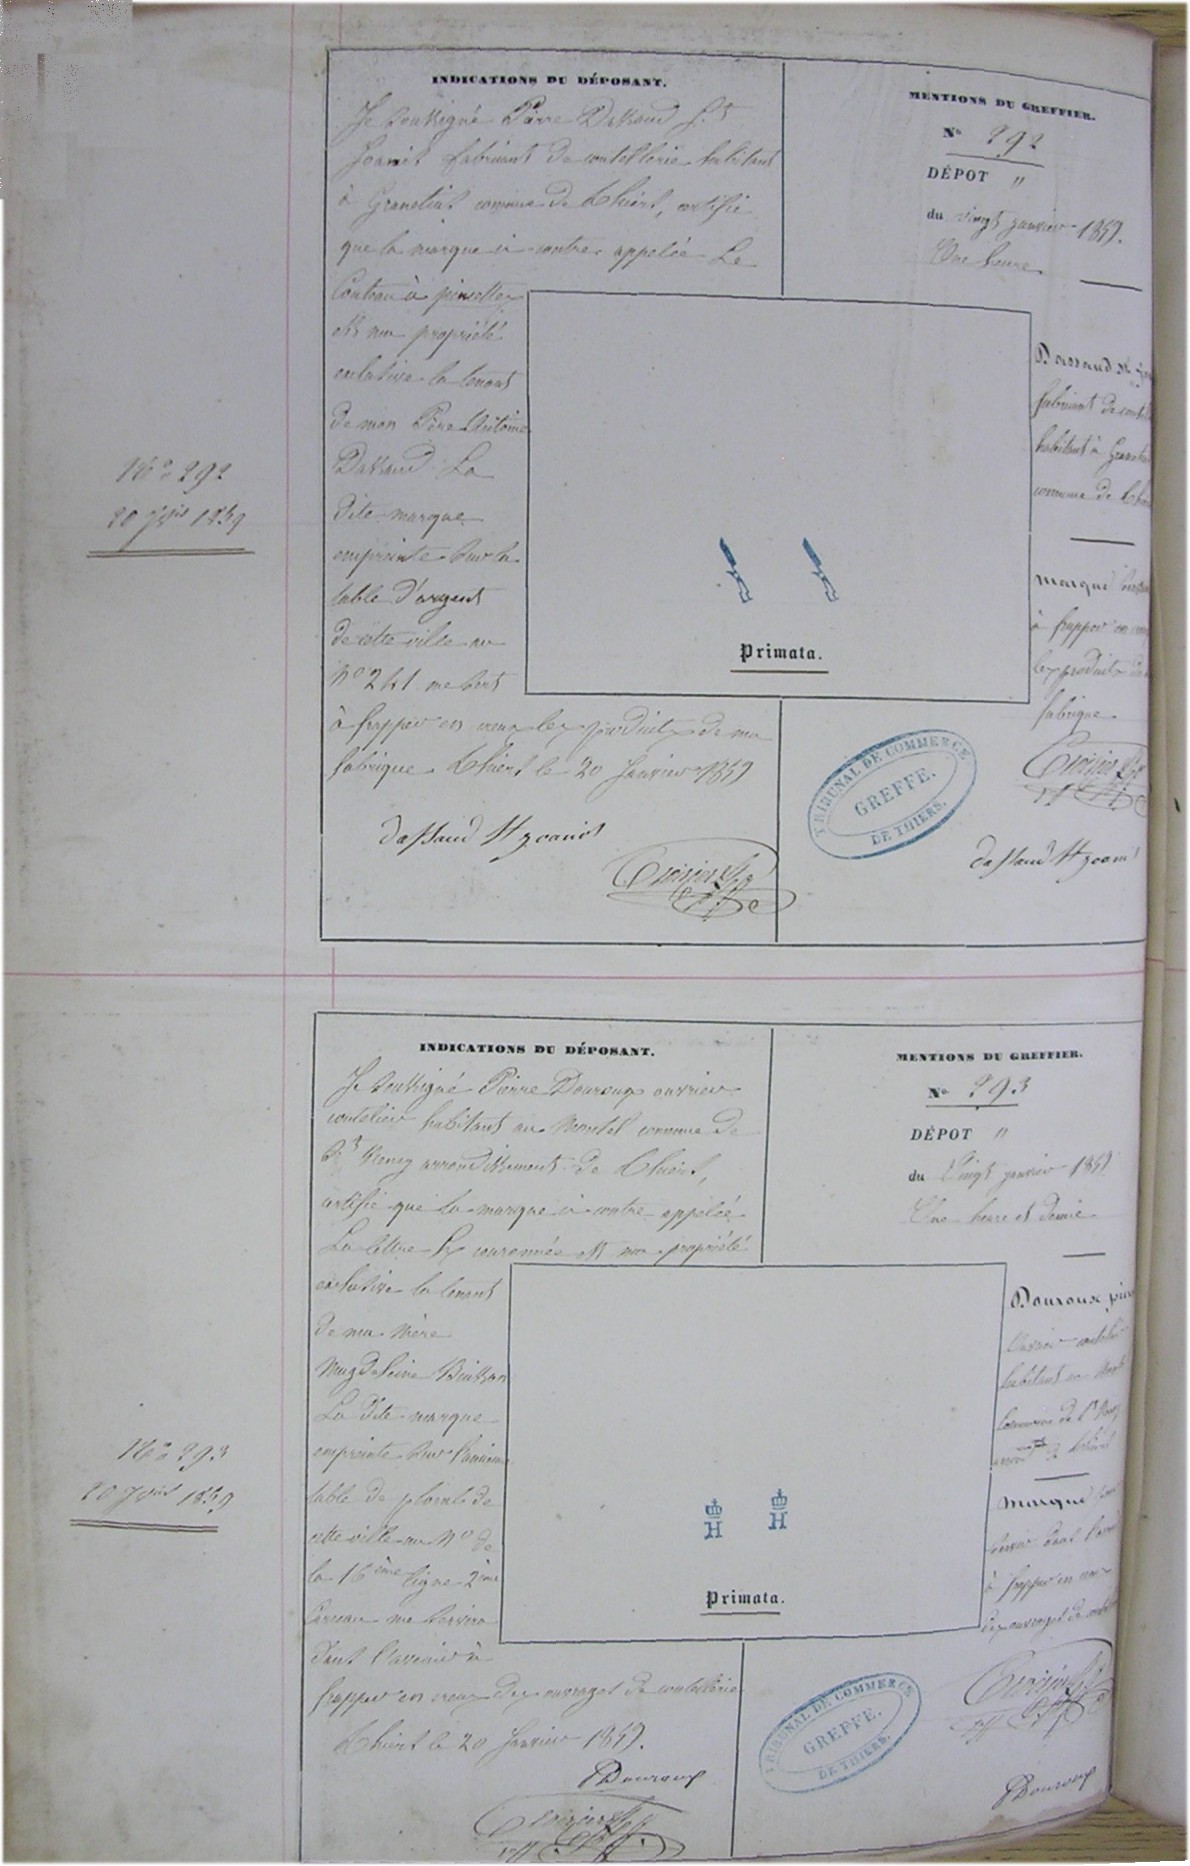 INDICATIONS DU DÉPOSANT.
Je soussigné Pierre Dassaud St
Joanis fabricant de coutellerie habitant
à Granetias commune de Thiers, certifie
que la marque ci contre appelée Le
Couteau à
est ma propriété
exclusive la tenant
de mon Père Antoine
Dassaud La
dite marque
empreinte sur la
table d'argent
de cette ville au
No 241 me sert
à frapper en creux les produits de ma
fabrique Thiers le 20 Janvier 1859
dassaud St joanis
MENTIONS DU GREFFIER.
No 292
DÉPOT "
du vingt janvier 1859.
Une heure
Dassaud St
fabricant de
habitant à
commune de
marque
à frapper en
les produits de
fabrique
Primata.
TRIBUNAL DE COMMERCE
GREFFE.
DE THIERS.
dassaud St joanis
No 292
20 Jvier 1859
INDICATIONS DU DÉPOSANT.
Je soussigné Pierre Douroux ouvrier
coutelier habitant au Montel commune de
St Remy arrondissement de Thiers,
certifie que la marque ci contre appelée
La lettre H couronnée est ma propriété
exclusive la tenant
de ma Mère
Magdeleine Buisson
La dite marque
empreinte sur l'ancienne
table de plomb de
cette ville au No de
la 16ème ligne 2ème
carreau me servira
dans l'avenir à
frapper en creux des ouvrages de coutellerie
Thiers le 20 Janvier 1859.
PDouroux
MENTIONS DU GREFFIER.
No 293
DÉPOT "
du Vingt janvier 1859
Une heure et demie
Douroux
ouvrier
habitant au
commune de St
de Thiers
marque
dans
à frapper en
des ouvrages de
H H
Primata.
TRIBUNAL DE COMMERCE
GREFFE.
DE THIERS.
PDouroux
No 293
20 Jvier 1859